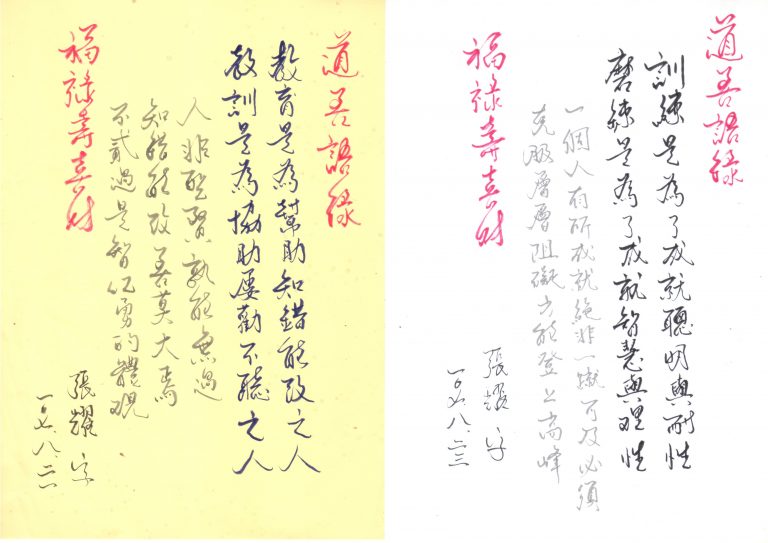 道善語錄
訓練是為了成就聰明與耐性
磨鍊是為了成就智慧與理性
一個人有所成就絕非一蹴可及必須
克服層層阻礙才能登上高峰
福祿壽喜財
張耀宇
一〇七.八.二三
道善語錄
教育是為幫助知錯能改之人
教訓是為協助屢勸不聽之人
人非聖賢孰能無過
知錯能改善莫大焉
不貳過是智仁勇的體現
福祿壽喜財
張耀宇
一〇七.八.二一